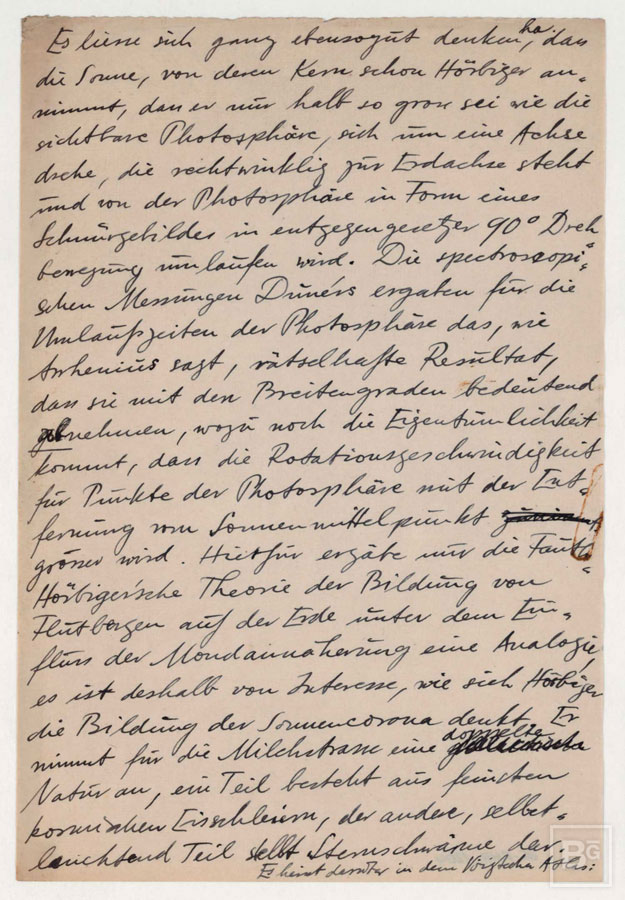 Es liesse sich ganz ebensogut denken, dass
die Sonne, von deren Kern schon Hörbiger an-
nimmt, dass er nur halb so gross sei wie die
sichtbare Photosphäre, sich um eine Achse
drehe, die rechtwinklig zur Erdachse steht
und von der Photosphäre in Form eines
Schnurgebildes in entgegengesetzer 90° Dreh
bewegung umlaufen wird. Die spectroscopi-
schen Messungen Dunérs ergaben für die
Umlaufszeiten der Photosphäre das, wie
Arrhenius sagt, rätselhafte Resultat,
dass sie mit den Breitengraden bedeutend
abnehmen, wozu noch die Eigentümlichkeit
kommt, dass die Rotationsgeschwindigkeit
für Punkte der Photosphäre mit der Ent-
fernung vom Sonnenmittelpunkt
grösser wird. Hierfür ergäbe nur die Fauth-
Hörbiger'sche Theorie der Bildung von
Flutbergen auf der Erde unter dem Ein-
fluss der Mondannäherung eine Analogie,
es ist deshalb von Interesse, wie sich Hörbiger
die Bildung der Sonnencorona denkt. Er
nimmt für die Milchstrasse eine doppelte
Natur an, ein Teil besteht aus feinsten
kosmischen Eisschleiern, der andere, selbst-
leuchtend Teil stellt Sternschwärme dar.
Es heisst darüber in dem Voigtschen Atlas:
BG